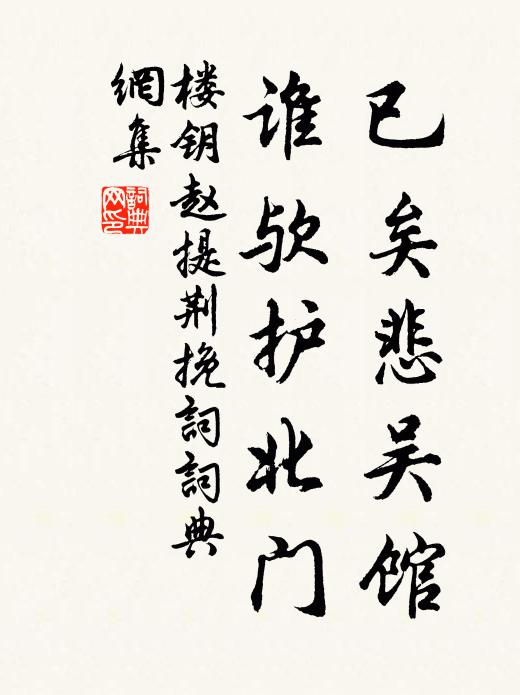 已矣悲吴馆
谁欤护北门
楼钥赵提荆挽词词典
網集
詞典
网印